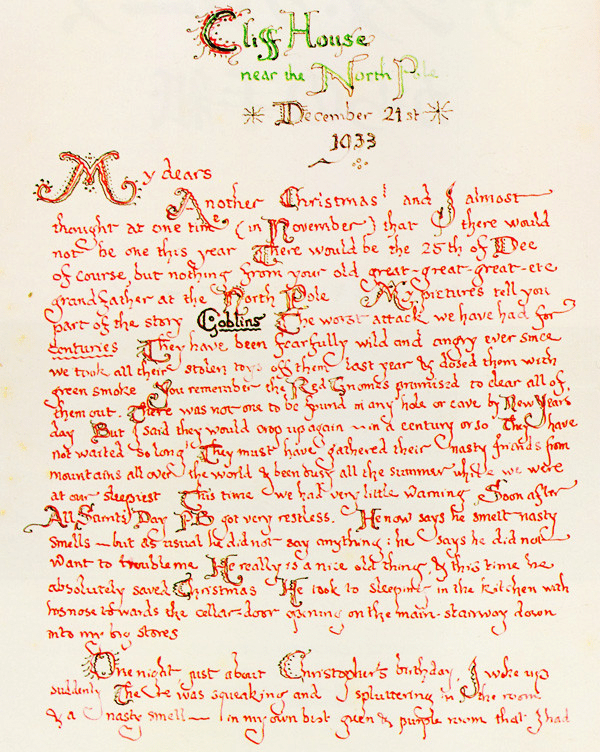 Cliff House
near the North Pole
December 21st
1933
My dears
Another Christmas! and I almost
thought at one time (in November) that there would
not be one this year There would be the 25th of Dec
of course, but nothing from your old great-great-great-etc
grandfather at the North Pole My pictures tell you
part of the story Goblins The worst attack we have had for
centuries They have been fearfully wild and angry ever since
we took all their stolen toys off them last year & dosed them with
green smoke You remember the Red Gnomes promised to clear all of
them out. There was not one to be found in any hole or cave by New Years
day But I said they would crop up again — in a century or so They have
not waited so long They must have gathered their nasty friends from
mountains all over the world & been busy all the summer while we were
at our sleepiest This time we had very little warning Soon after
All Saints' Day PB got very restless. He now says he smelt nasty
smells — but as usual he did not say anything: he says he did not
want to trouble me He really is a nice old thing, & this time he
absolutely saved Christmas He took to sleeping in the kitchen with
his nose towards the cellar-door opening on the main-stairway down
into my big stores
One night just about Christopher's birthday, I woke up
suddenly There was squeaking and spluttering in the room
& a nasty smell — in my own best green & purple room that I had